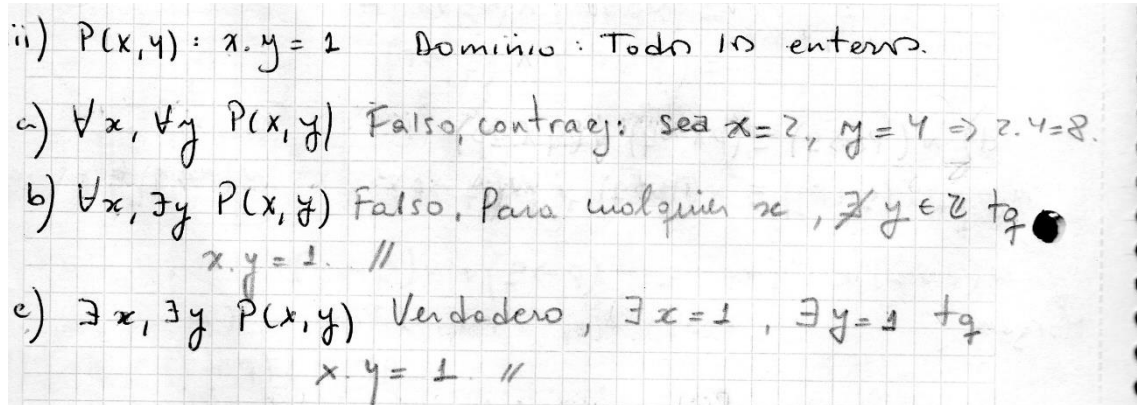 ii) P(x,y) : x.y = 1 Dominio : Todos los enteros.
a) ∀x, ∀y P(x,y) Falso, contraej: sea x=2, y=4 => 2.4=8.
b) ∀x, ∃y P(x,y) Falso, Para cualquier x, ∄ y ∈ Z tq
x.y = 1. //
c) ∃x, ∃y P(x,y) Verdadero, ∃x=1, ∃y=1 tq
x.y = 1 //